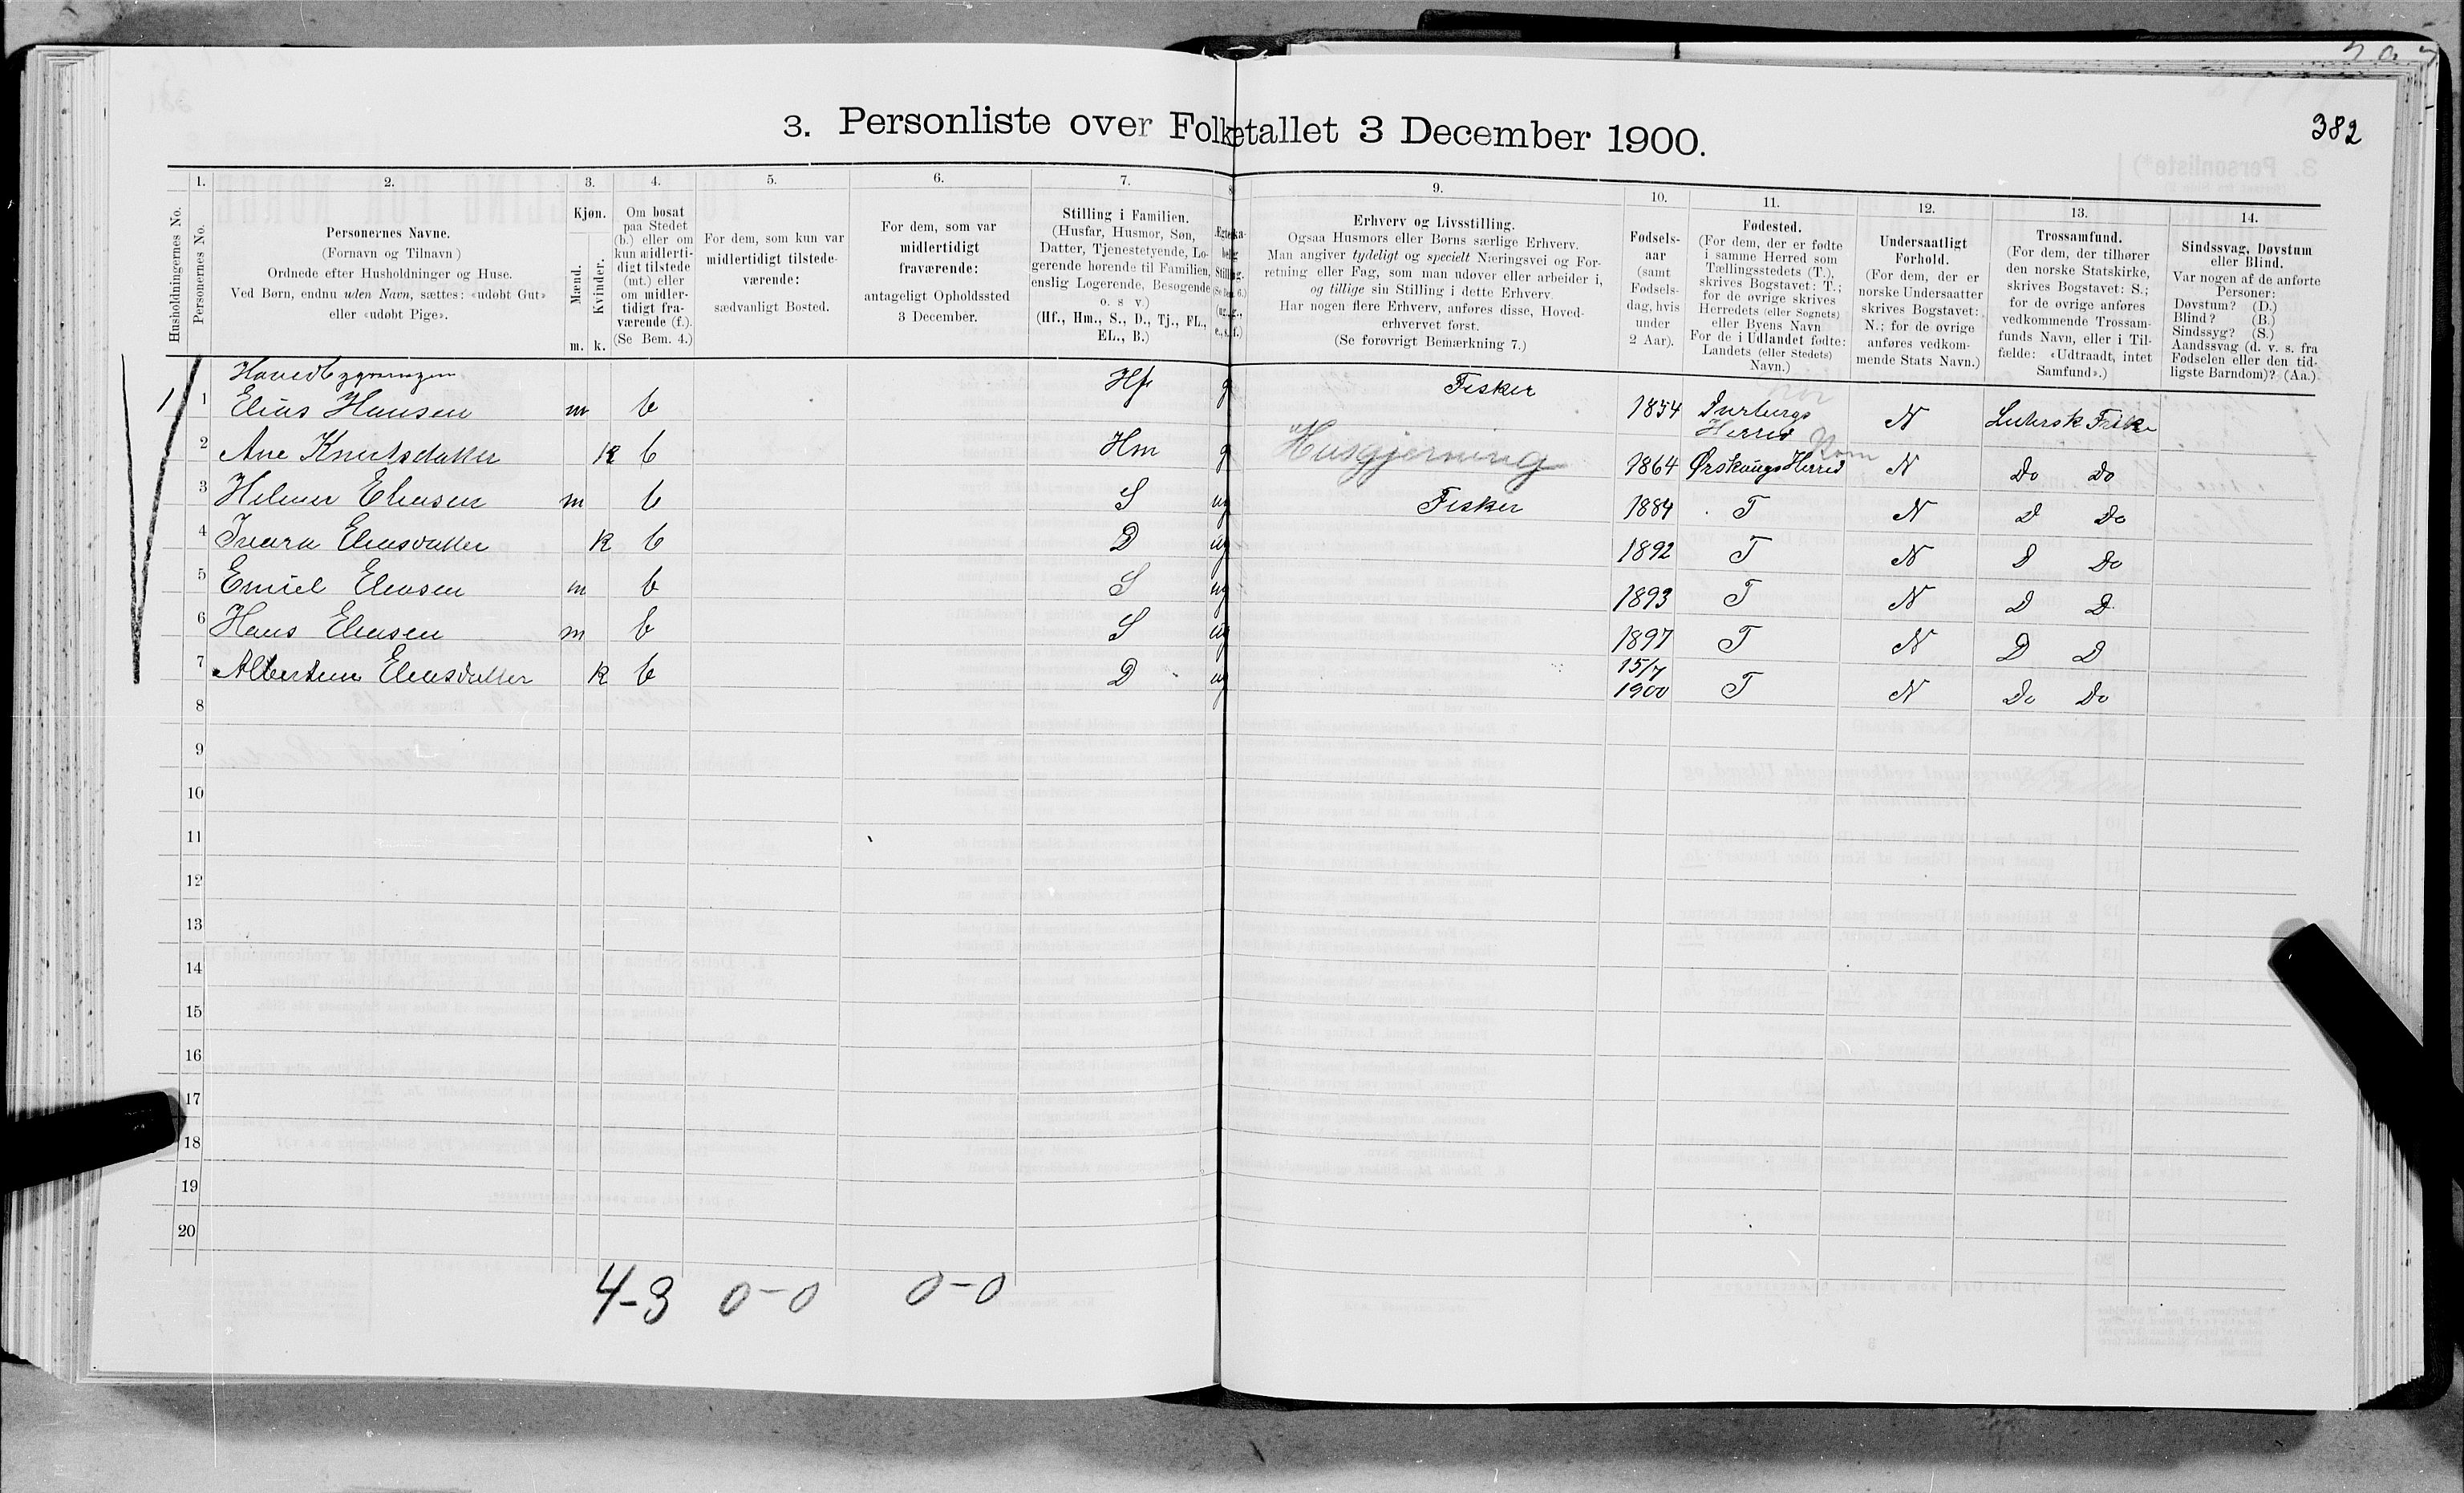 382
3. Personliste over Folketallet 3 December 1900.
Husholdningernes No.
1.
Personernes No.
2.
Personernes Navne.
(Fornavn og Tilnavn)
Ordnede efter Husholdninger og Huse.
Ved Børn, endnu uden Navn, sættes: «udøbt Gut»
eller «udøbt Pige».
3.
Kjøn.
Mænd.
Kvinder.
m. k.
4.
Om bosat
paa Stedet
(b.) eller om
kun midlerti-
digt tilstede
(mt.) eller
om midler-
tidigt fra-
værende (f.).
(Se Bem. 4.)
5.
For dem, som kun var
midlertidigt tilstede-
værende:
sædvanligt Bosted.
6.
For dem, som var
midlertidigt
fraværende:
antageligt Opholdssted
3 December.
7.
Stilling i Familien.
(Husfar, Husmor, Søn,
Datter, Tjenestetyende, Lo-
gerende hørende til Familien,
enslig Logerende, Besøgende
o. s v.)
(Hf., Hm., S., D., Tj., FL.,
EL., B.)
9.
Erhverv og Livsstilling.
Ogsaa Husmors eller Børns særlige Erhverv.
Man angiver tydeligt og specielt Næringsvei og For-
retning eller Fag, som man udøver eller arbeider i,
og tillige sin Stilling i dette Erhverv.
Har nogen flere Erhverv, anføres disse, Hoved-
erhvervet først.
(Se forøvrigt Bemærkning 7.)
10.
Fødsels-
aar
(samt
Fødsels-
dag, hvis
under
2 Aar).
11.
Fødested.
(For dem, der er fødte
i samme Herred som
Tællingsstedets (T.),
skrives Bogstavet: T.;
for de øvrige skrives
Herredets (eller Sognets)
eller Byens Navn
For de i Udlandet fødte:
Landets (eller Stedets)
Navn.)
12.
Undersaatligt
Forhold.
(For dem, der er
norske Undersaatter
skrives Bogstavet:
N.; for de øvrige
anføres vedkom-
mende Stats Navn.)
13.
Trossamfund.
(For dem, der tilhører
den norske Statskirke,
skrives Bogstavet: S.;
for de øvrige anføres
vedkommende Trossam-
funds Navn, eller i Til-
fælde: «Udtraadt, intet
Samfund».)
14.
Sindssvag, Døvstum
eller Blind.
Var nogen af de anførte
Personer:
Døvstum? (D.)
Blind? (B.)
Sindssyg? (S.)
Aandssvag (d. v. s. fra
Fødselen eller den tid-
ligste Barndom)? (Aa.)
Hovedbygningen
1 1 Elias Hansen m b Hf g Fisker 1854 Herred N Luthersk Frik
2 Ane Knutsdatter k b Hm g Husgjerning 1864 Ørskougs Herred N Do Do
3 Helmer Eliasen m b S ug Fisker 1884 T N D Do
4 Ivara Eliasdatter k b D ug 1892 T N D Do
5 Emiel Eliasen m b S ug 1893 T N D D
6 Hans Eliasen m b S ug 1897 T N D D
7 Albertine Eliasdatter k b D ug 15/7 1900 T N Do Do
8
9
10
11
12
13
14
15
16
17
18
19
20
4-3 0-0 0-0